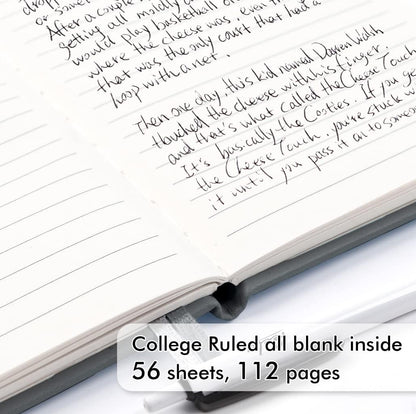 After a couple
getting all mildly
would play basketball
where the cheese was, even
that was the only court that had a
hoop with a net.
Then one day, this kid named Darren Walsh
touched the cheese with his finger.
and that's what called the Cheese Touch
It's basically the Cooties. If you ge
the Cheese Touch, you're stuck w
it until you pass it on to some
College Ruled all blank inside
56 sheets, 112 pages